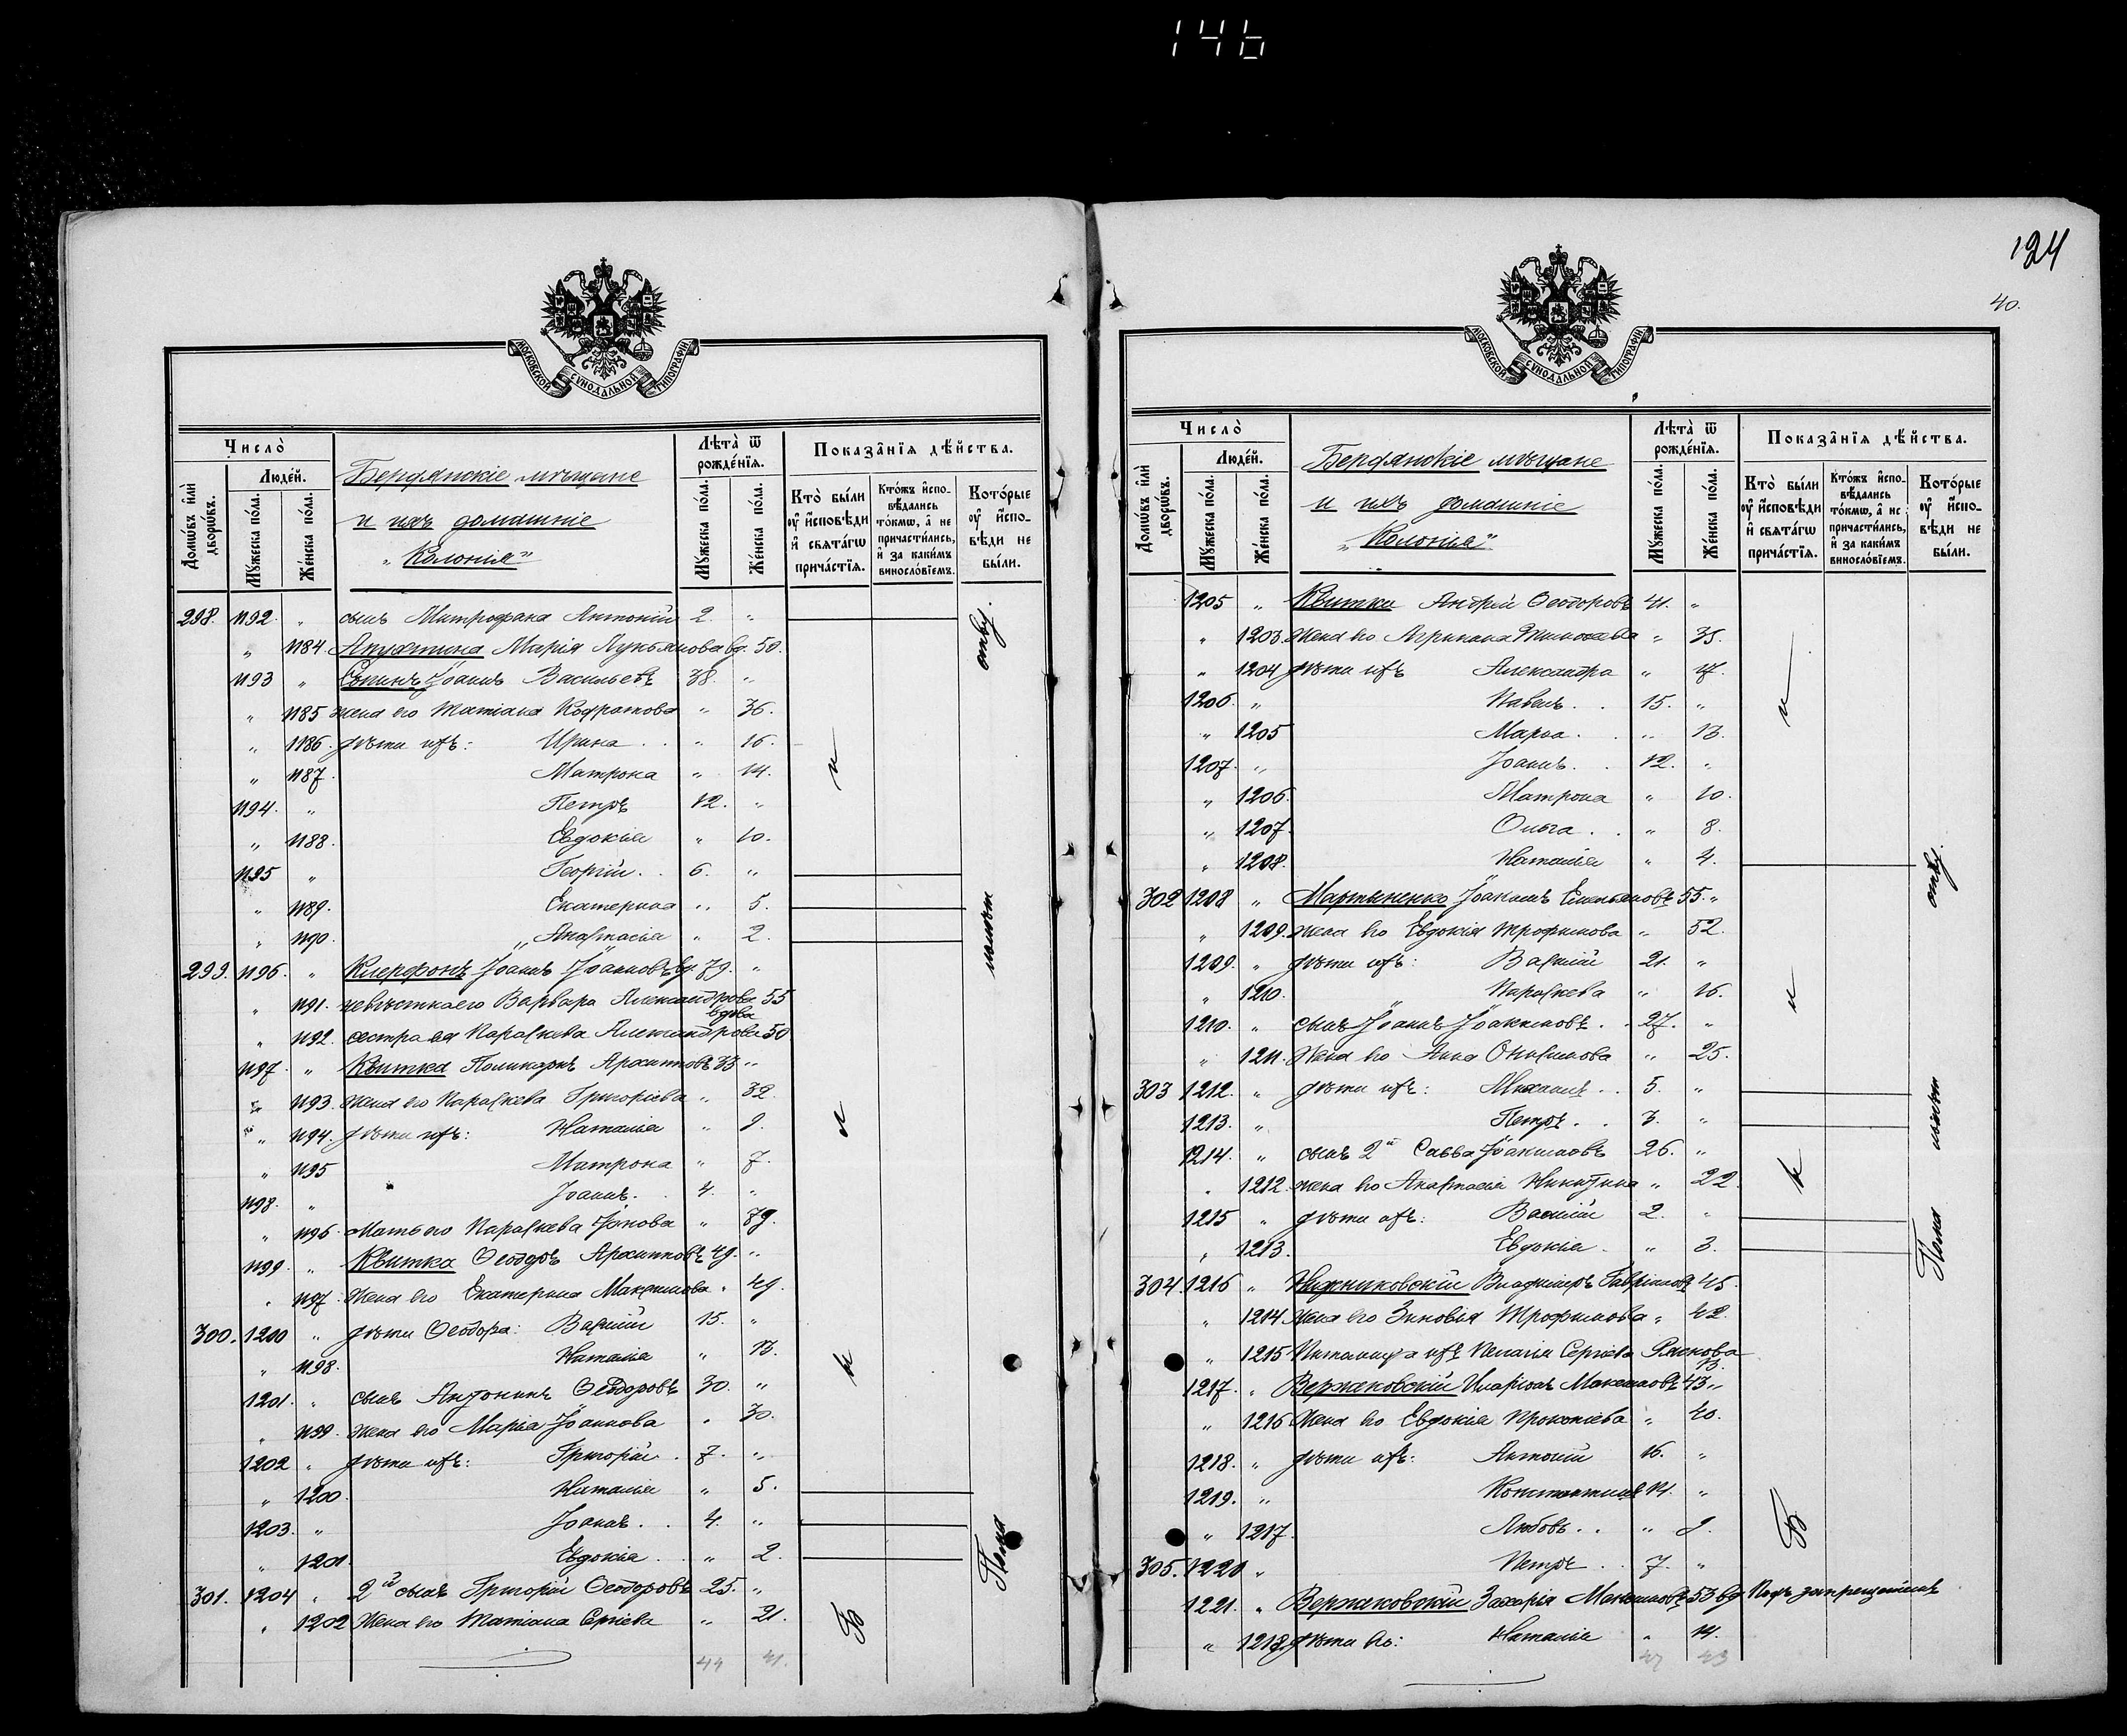 146
МОСКОВСКОЙ СУНОДАЛЬНОЙ ТИПОГРАФІИ
Число̀
Домѡ́въ и҆лѝ дворѡ́въ.
Люде́й.
Мꙋ́жеска по́ла.
Же́нска по́ла.
Бердянскіе мѣщане
и ихъ домашніе
„Колонія"
Лѣта̀ ѿ рожде́нїѧ.
Мꙋ́жеска по́ла.
Же́нска по́ла.
Показа̑нїѧ дѣ́йства.
Кто̀ бы́ли ᲂу҆ и҆сповѣ́ди и҆ свѧта́гѡ прича́стїѧ.
Кто́жъ и҆сповѣ́дались то́кмѡ, а҆ не причасти́лись, и҆ за каки́мъ винослѡ́вїемъ.
Кото́рые ᲂу҆ и҆сповѣ́ди не бы́ли.
298. 1192. „ сынъ Митрофана Антоній 2. „
„ 1184. Апухтина Марія Лукьянова вд. 50.
1193 „ Іоаннъ Васильевъ 38. „
„ 1185 жена его Татіана Кодратова „ 36.
„ 1186. дѣти ихъ: Ирина . . „ 16.
„ 1187. Матрона „ 14.
1194. „ Петръ 12. „
„ 1188. Евдокія „ 10.
1195 „ Георгій . . 6. „
„ 1189. Екатерина „ 5.
„ 1190. Анастасія „ 2.
299. 1196. „ Іоаннъ Іоанновъ вд. 79. „
„ 1191. невѣстка его Варвара Александрова 55
вдова
„ 1192. сестра ея Параскева Александрова 50
1197. „ Квитка Поликарпъ Архиповъ 33 „
„ 1193. жена его Параскева Григоріева „ 32.
„ 1194. дѣти ихъ: Наталія „ 9.
„ 1195 Матрона „ 7.
1198. „ Іоаннъ. . 4. „
„ 1196. Мать его Параскева „ 79.
1199. „ Квитка Ѳеодоръ Архиповъ 49. „
„ 1197. Жена его Екатерина Максимова „ 49.
300. 1200 „ дѣти Ѳеодора: Василій 15. „
„ 1198. Наталія „ 13.
1201. „ сынъ Антонинъ Ѳеодоровъ 30. „
„ 1199. жена его Марія Іоаннова „ 30.
1202 „ дѣти ихъ: Григорій . 7. „
„ 1200. Наталія „ 5.
1203. „ Іоаннъ. . 4. „
„ 1201. Евдокія . . „ 2.
301. 1204 „ 2й сынъ Григорій Ѳеодоровъ 25. „
„ 1202 Жена его Татіана Сергіева „ 21.
44 41.
124
40.
МОСКОВСКОЙ СУНОДАЛЬНОЙ ТИПОГРАФІИ
Число̀
Домѡ́въ и҆лѝ дворѡ́въ.
Люде́й.
Мꙋ́жеска по́ла.
Же́нска по́ла.
Бердянскіе мѣщане
и ихъ домашніе
„Колонія"
Лѣта̀ ѿ рожде́нїѧ.
Мꙋ́жеска по́ла.
Же́нска по́ла.
Показа̑нїѧ дѣ́йства.
Кто̀ бы́ли ᲂу҆ и҆сповѣ́ди и҆ свѧта́гѡ прича́стїѧ.
Кто́жъ и҆сповѣ́дались то́кмѡ, а҆ не причасти́лись, и҆ за каки́мъ винослѡ́вїемъ.
Кото́рые ᲂу҆ и҆сповѣ́ди не бы́ли.
1205 „ Квитка Андрій Ѳеодоровъ 41. „
„ 1203. Жена его Агрипина „ 35.
„ 1204 дѣти ихъ Александра „ 17.
1206. „ Павелъ. . 15. „
„ 1205 Марѳа. . „ 13.
1207. „ Іоаннъ. . 12. „
„ 1206. Матрона „ 10.
„ 1207. Ольга . . „ 8.
„ 1208. Наталія „ 4.
302 1208 „ Мартыненко Іоакимъ Емельяновъ 55. „
„ 1209. жена его Евдокія Трофимова „ 52.
1209. „ дѣти ихъ: Василій 21. „
„ 1210. Параскева „ 16.
1210. „ сынъ Іоаннъ Іоакимовъ . . 27. „
„ 1211. Жена его Анна Онисимова „ 25.
303 1212. „ дѣти ихъ: Михаилъ . . 5. „
1213. „ Петръ . . 3. „
1214. „ сынъ 2й Савва Іоакимовъ 26. „
„ 1212. жена его Анастасія Никитина „ 22.
1215 „ дѣти ихъ: Василій 2. „
„ 1213. Евдокія . „ 3.
304. 1216 „ Владиміръ Гавріиловъ 45.
„ 1214 Жена его Зиновія Трофимова „ 42.
„ 1215 Питомица ихъ Пелагія Сергіева
13.
1217. „ Вержаковскій Иларіонъ Максимовъ 43 „
„ 1216 Жена его Евдокія Прокопіева „ 40.
1218. „ дѣти ихъ: Антоній 16. „
1219. „ Константинъ 14. „
„ 1217. Любовь . . „ 9.
305. 1220 „ Петръ . . 7. „
1221. „ Вержаковскій Захарія Максимовъ 53 вд Подъ запрещеніемъ
„ 1218. дѣти его: Наталія „ 14.
47 43